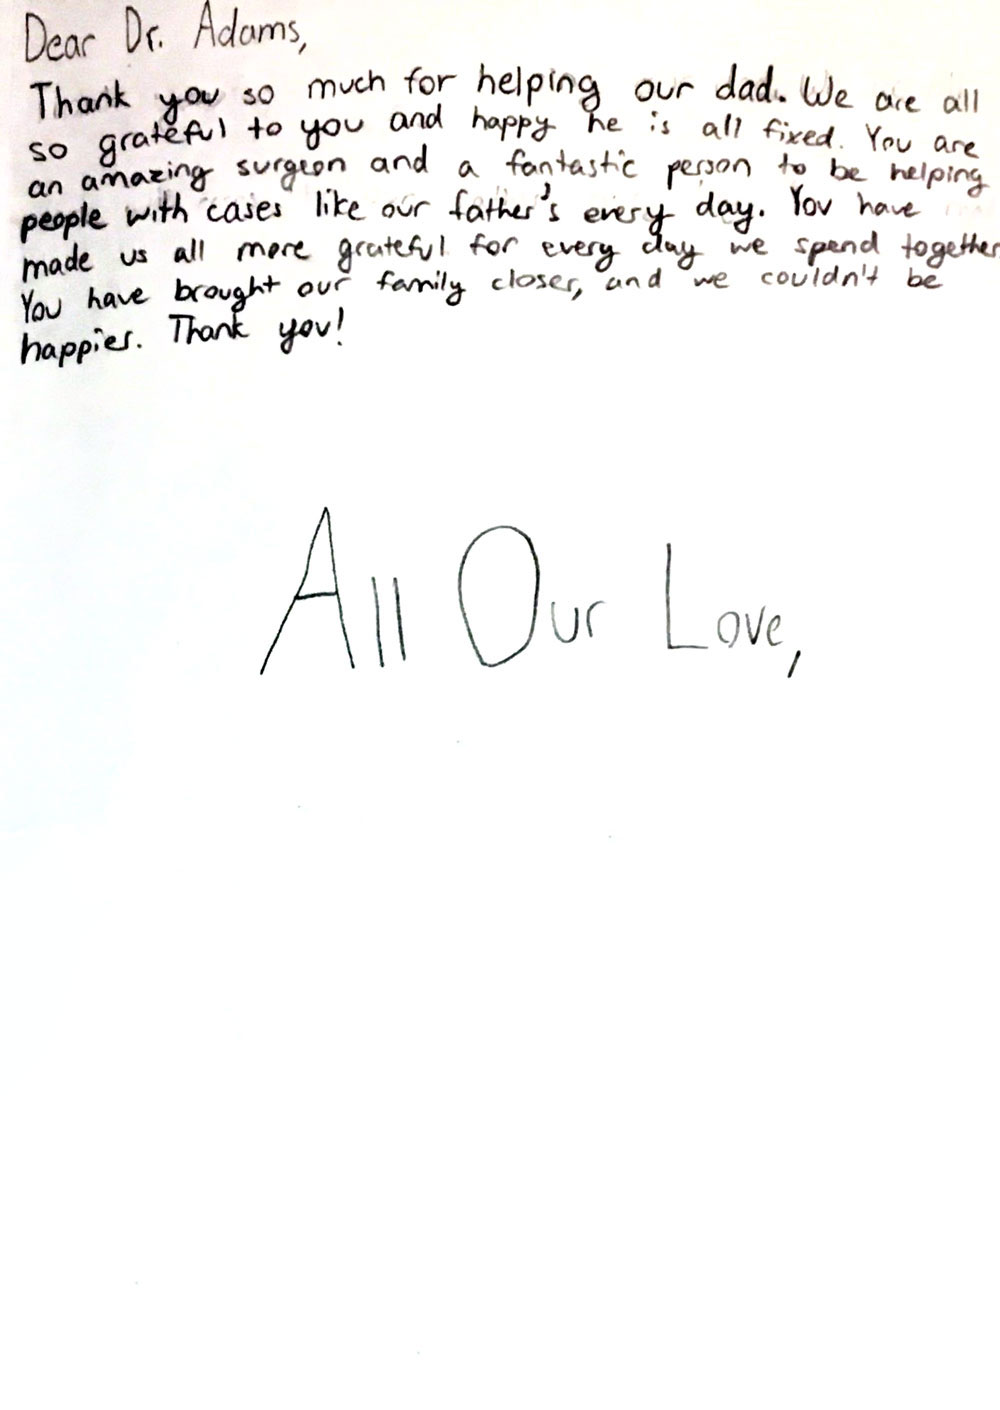 Dear Dr. Adams,
Thank you so much for helping our dad. We are all
so grateful to you and happy he is all fixed. You are
an amazing surgeon and a fantastic person to be helping
people with cases like our father's every day. You have
made us all more grateful for every day we spend together.
You have brought our family closer, and we couldn't be
happier. Thank you!
All Our Love,